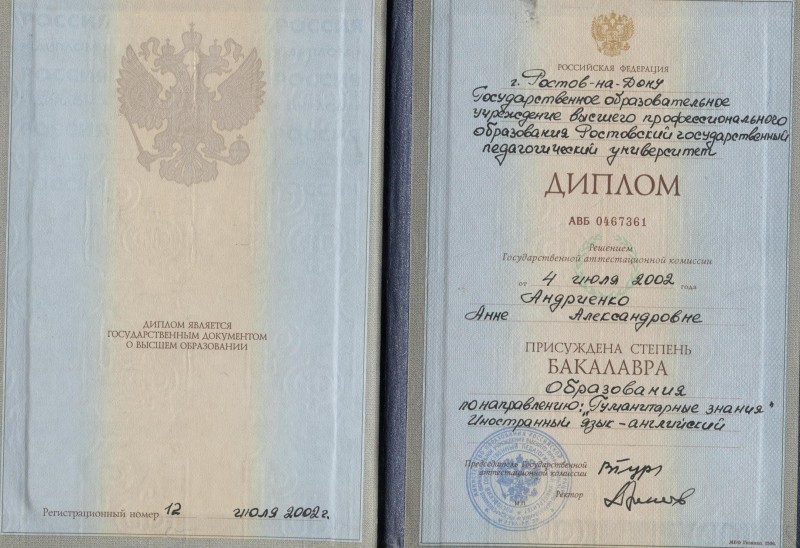 ДИПЛОМ ЯВЛЯЕТСЯ
ГОСУДАРСТВЕННЫМ ДОКУМЕНТОМ
О ВЫСШЕМ ОБРАЗОВАНИИ
Регистрационный номер 12 июля 2002г.
РОССИЙСКАЯ ФЕДЕРАЦИЯ
г. Ростов-на-Дону
Государственное образовательное
учреждение высшего профессионального
образования Ростовский государственный
педагогический университет
ДИПЛОМ
АВБ 0467361
Решением
Государственной аттестационной комиссии
от 4 июля 2002 года
Андриенко
Анне Александровне
ПРИСУЖДЕНА СТЕПЕНЬ
БАКАЛАВРА
Образования
по направлению: "Гуманитарные знания"
Иностранный язык - английский
Председатель Государственной
аттестационной комиссии
Ректор